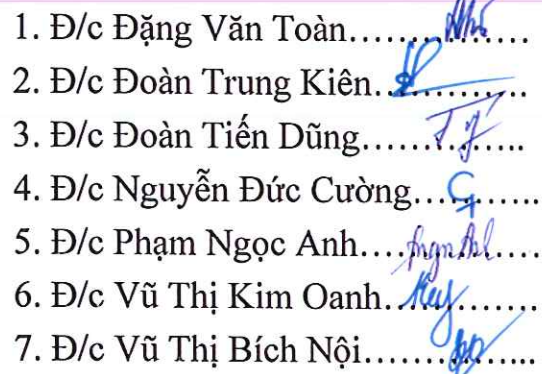 1. Đ/c Đặng Văn Toàn................
2. Đ/c Đoàn Trung Kiên.............
3. Đ/c Đoàn Tiến Dũng..............
4. Đ/c Nguyễn Đức Cường...........
5. Đ/c Phạm Ngọc Anh...............
6. Đ/c Vũ Thị Kim Oanh.............
7. Đ/c Vũ Thị Bích Nội...............